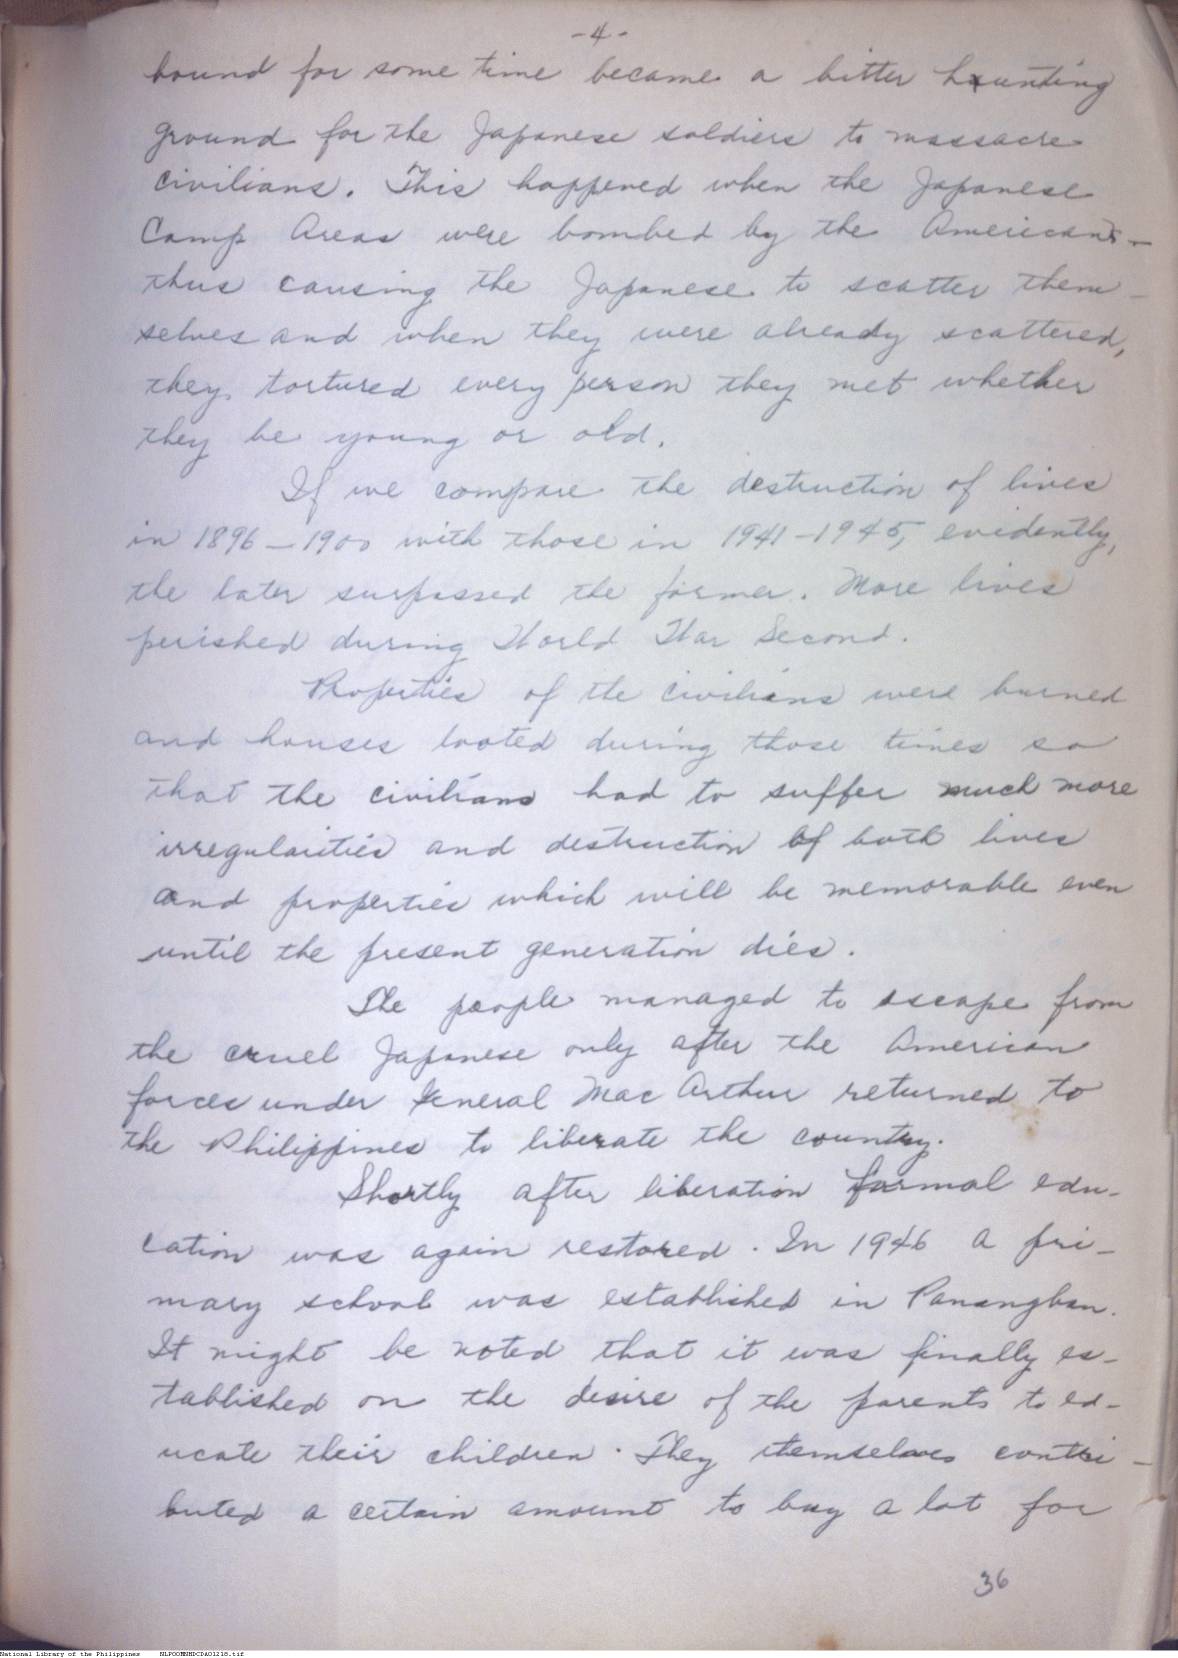 -4-
bound for some time became a bitter haunting
ground for the Japanese soldiers to massacre
civilians. This happened when the Japanese
Camp Areas were bombed by the Americans -
thus causing the Japanese to scatter them-
selves and when they were already scattered,
they tortured every person they met whether
they be young or old.
If we compare the destruction of lives
in 1896-1900 with those in 1941-1945, evidently,
the later surpassed the former. More lives
perished during World War Second.
Properties of the civilians were burned
and houses looted during those times so
that the civilians had to suffer much more
irregularities and destruction of both lives
and properties which will be memorable even
until the present generation dies.
The people managed to escape from
the cruel Japanese only after the American
forces under General Mac Arthur returned to
the Philippines to liberate the country.
Shortly after liberation formal edu-
cation was again restored. In 1946 a pri-
mary school was established in Panangban.
It might be noted that it was finally es-
tablished on the desire of the parents to ed-
ucate their children. They themselves contri-
buted a certain amount to buy a lot for
36
National Library of the Philippines NLPOOMNHDCDA01218.tif